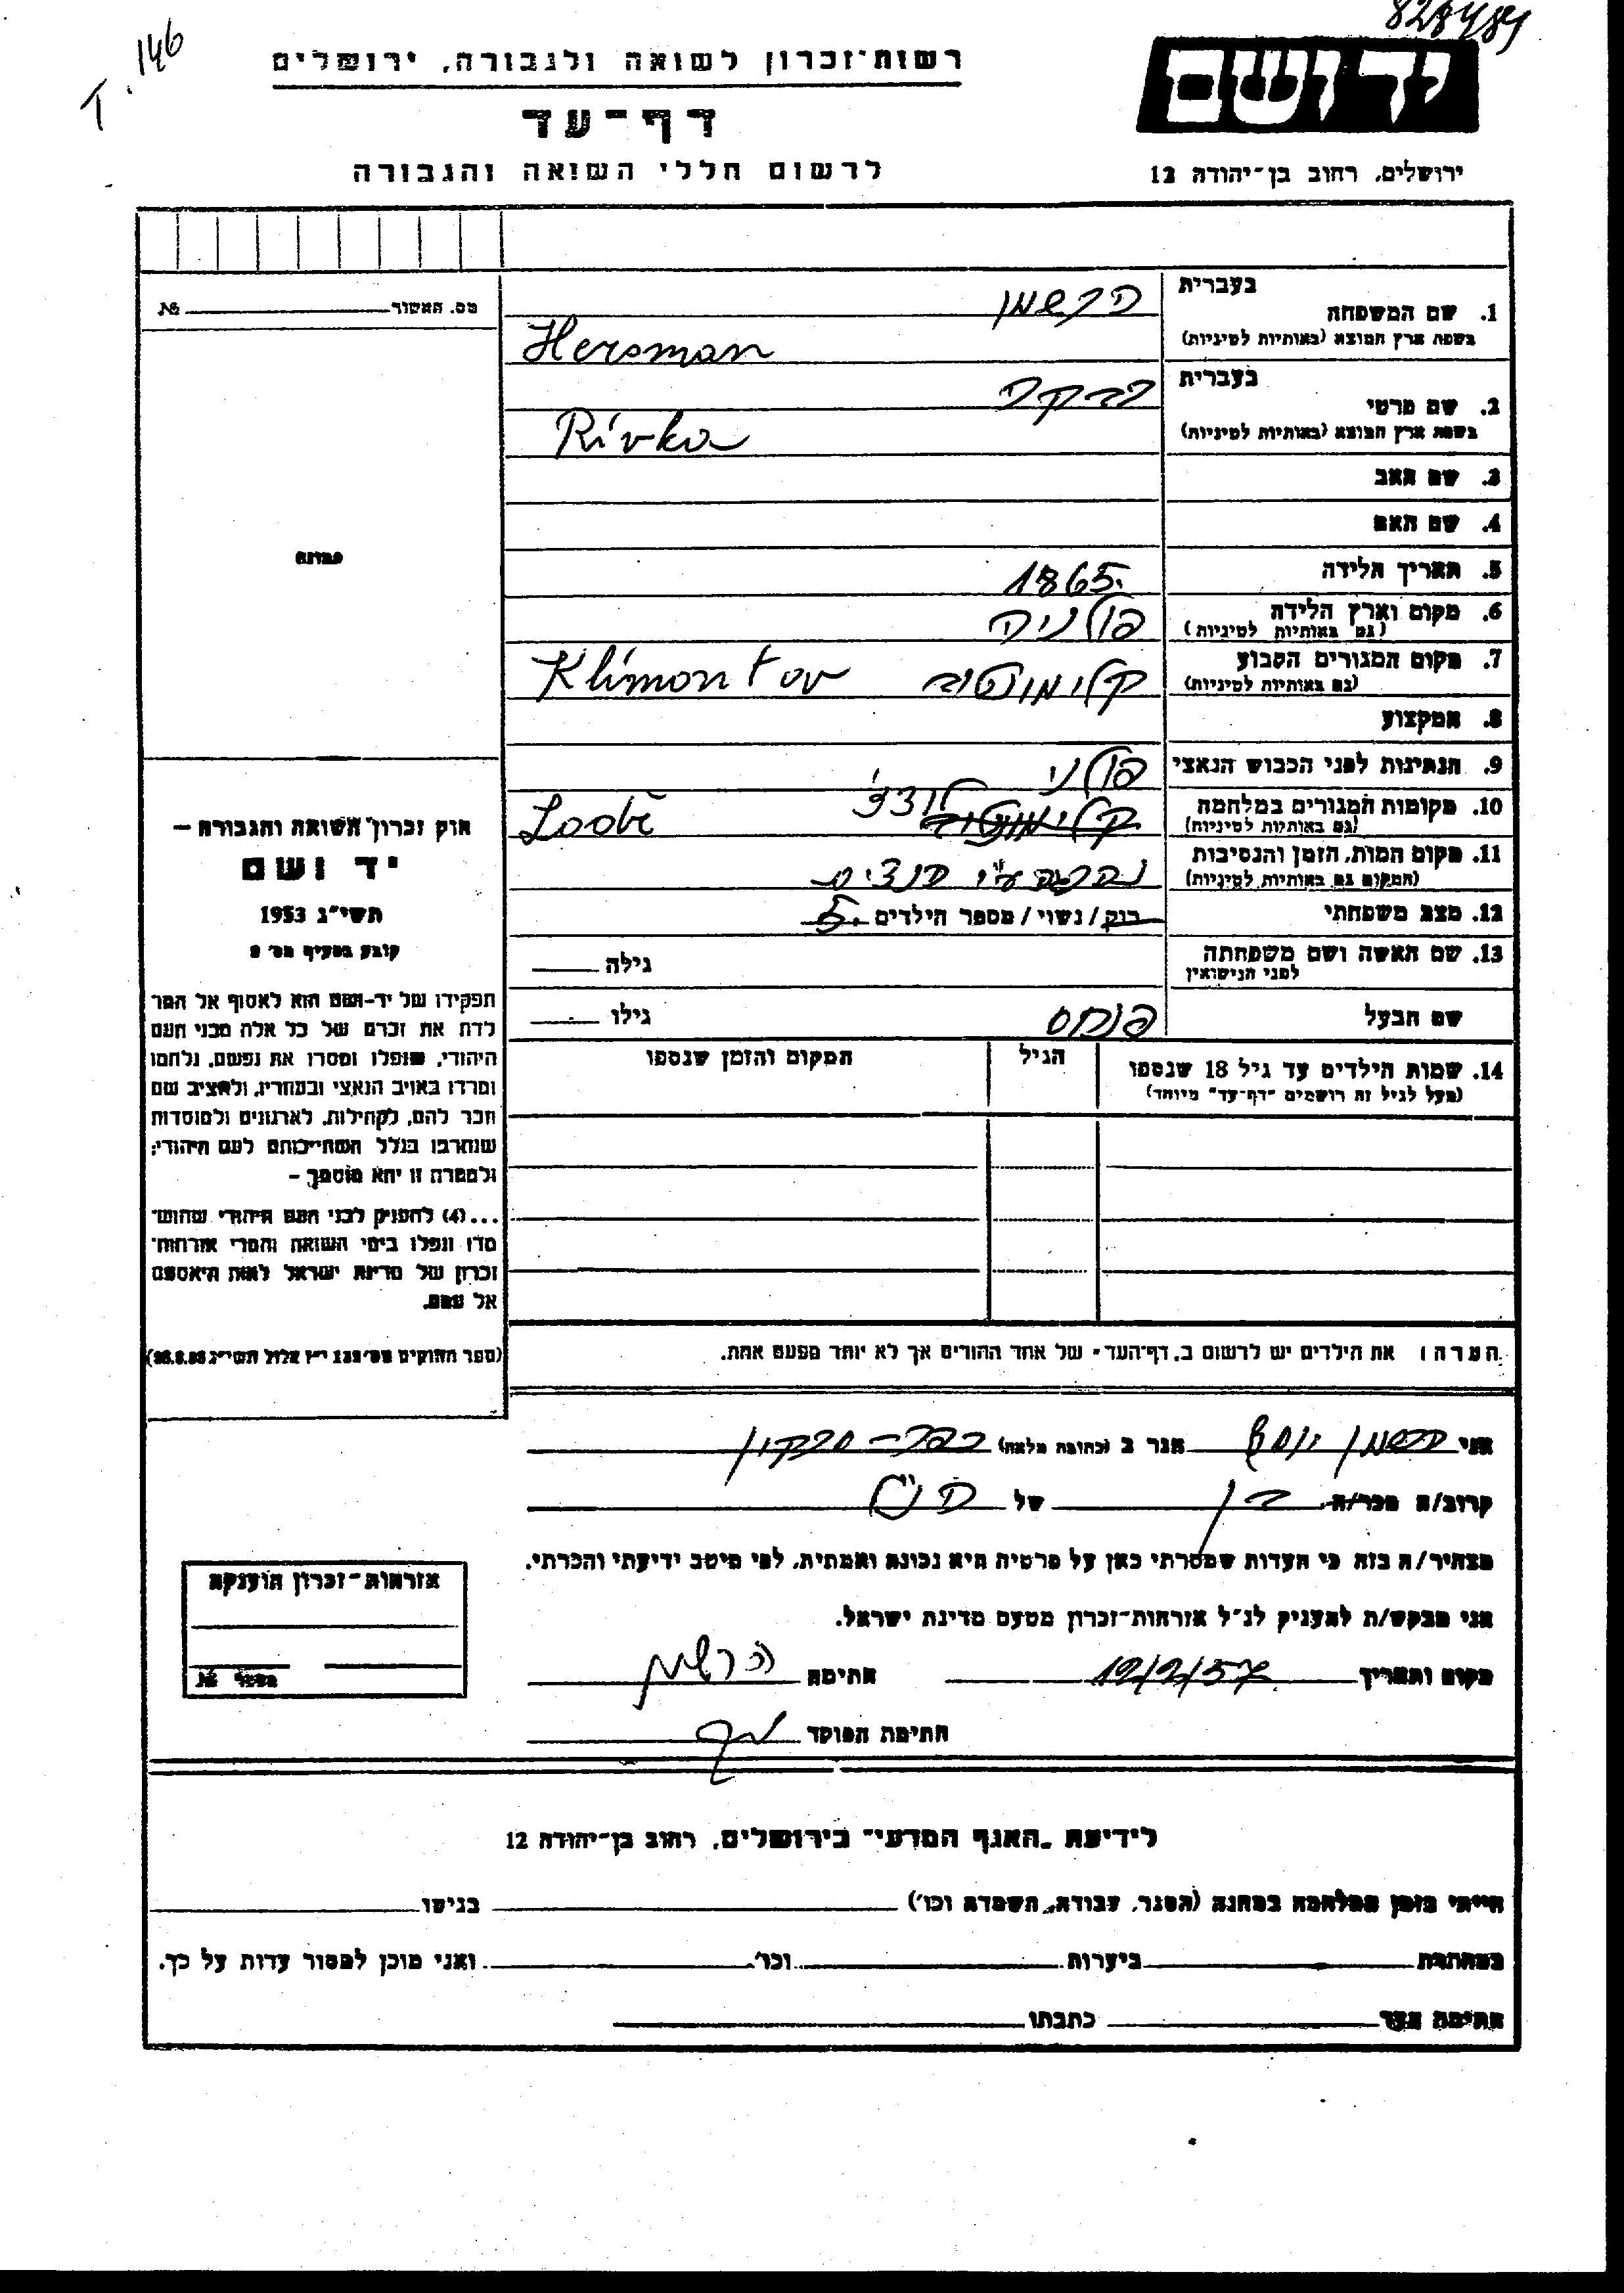 T. 146
828484
רשות־זכרון לשואה ולגבורה, ירושלים
דף־עד
לרשום חללי השואה והגבורה
יד ושם
ירושלים, רחוב בן־יהודה 12
מס. האשור № 
1. שם המשפחה בעברית הרשמן
בשפת ארץ המוצא (באותיות לטיניות) Hersman
2. שם פרטי בעברית רבקה
בשפת ארץ המוצא (באותיות לטיניות) Rivka
3. שם האב
4. שם האם
תמונה
5. תאריך הלידה 1865.
6. מקום וארץ הלידה פולניה
(גם באותיות לטיניות)
7. מקום המגורים הקבוע קלימונטוב Klimontov
(גם באותיות לטיניות)
8. המקצוע
9. הנתינות לפני הכבוש הנאצי פולני
10. מקומות המגורים במלחמה קלימונטוב לודז' Lodz
(גם באותיות לטיניות)
11. מקום המות, הזמן והנסיבות נהרגה ע"י
(המקום גם באותיות לטיניות)
12. מצב משפחתי רווק/נשוי/מספר הילדים 5.
13. שם האשה ושם משפחתה גילה
לפני הנישואין
שם הבעל פנחס גילו
14. שמות הילדים עד גיל 18 שנספו הגיל המקום והזמן שנספו
(מעל לגיל זה רושמים "דף־עד" מיוחד)
חוק זכרון השואה והגבורה –
יד ושם
תשי"ג 1953
קובע בסעיף מס׳ 2
תפקידו של יד־ושם הוא לאסוף אל המו
לדת את זכרם של כל אלה מבני העם
היהודי, שנפלו ומסרו את נפשם, נלחמו
ומרדו באויב הנאצי ובעוזריו, ולהציב שם
וזכר להם, לקהילות, לארגונים ולמוסדות
שנחרבו בגלל השתייכותם לעם היהודי;
ולמטרה זו יהא מוסמך –
...(4) להעניק לבני העם היהודי שהוש־
מדו ונפלו בימי השואה והמרי אזרחות־
זכרון של מדינת ישראל לאות היאספם
אל עמם.
(ספר החוקים מס׳ 132 י"ז אלול תשי"ג 28.8.53)
הערה: את הילדים יש לרשום ב„דף־העד" של אחד ההורים אך לא יותר מפעם אחת.
אני הרשמן יוסף הגר ב (כתובת מלאה) כפר-חבקוק
קרוב/ה מכר/ה בן של הנ"ל
מצהיר/ה בזה כי העדות שמסרתי כאן על פרטיה היא נכונה ואמתית, לפי מיטב ידיעתי והכרתי.
אני מבקש/ת להעניק לנ"ל אזרחות־זכרון מטעם מדינת ישראל.
מקום ותאריך 12/2/57 חתימה הרשמן
חתימת הפוקד
אזרחות־זכרון הוענקה
מספר №
לידיעת „האגף המדעי" בירושלים, רחוב בן־יהודה 12
הייתי בזמן המלחמה במחנה (הסגר, עבודה, השמדה וכו׳) בגיטו
במחתרת ביערות וכו׳ ואני מוכן למסור עדות על כך.
חתימת העד כתבתו